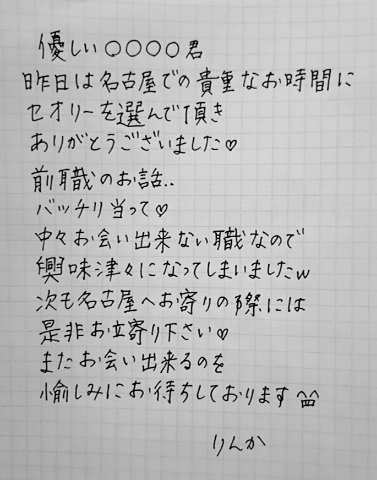 優しい○○○○君
昨日は名古屋での貴重なお時間に
セオリーを選んで頂き
ありがとうございました♡
前職のお話..
バッチリ当って♡
中々お会い出来ない職なので
興味津々になってしまいましたw
次も名古屋へお寄りの際には
是非お立寄り下さい♡
またお会い出来るのを
愉しみにお待ちしております
りんか